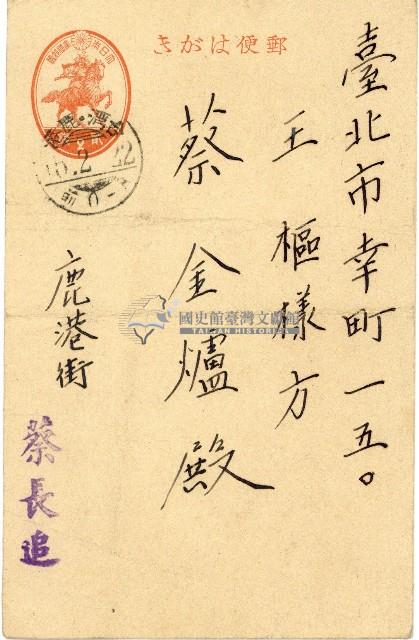 郵便はがき
臺北市幸町一五〇
王樞樣方
蔡金爐殿
鹿港街
蔡長追
國史館臺灣文獻館
TAIWAN HISTORICA